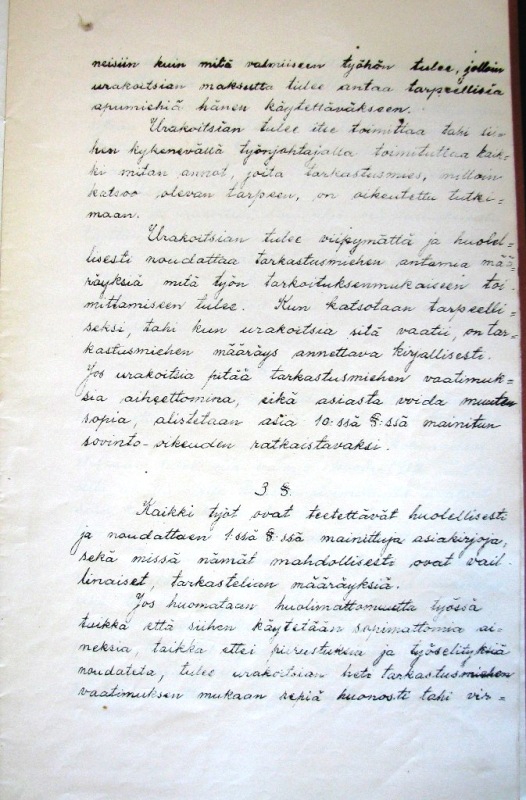 neisiin kuin mitä valmiiseen työhön tulee, jolloin
urakoitsian maksutta tulee antaa tarpeellisia
apumiehiä hänen käytettäväkseen.
Urakoitsian tulee itse toimittaa tahi sii-
hen kykenevällä työnjohtajalla toimituttaa kaik-
ki mitan annot, joita tarkastusmies, milloin
katsoo olevan tarpeen, on oikeutettu tutki-
maan.
Urakoitsian tulee viipymättä ja huolel-
lisesti noudattaa tarkastusmiehen antamia mää-
räyksiä mitä työn tarkoituksenmukaiseen toi-
mittamiseen tulee. Kun katsotaan tarpeelli-
seksi, tahi kun urakoitsia sitä vaatii, on tar-
kastusmiehen määräys annettava kirjallisesti.
Jos urakoitsia pitää tarkastusmiehen vaatimuk-
sia aiheettomina, eikä asiasta voida muuten
sopia, alistetaan asia 10:ssä §:ssä mainitun
sovinto-oikeuden ratkaistavaksi.
3 §.
Kaikki työt ovat teetettävät huolellisesti
ja noudattaen 1:ssä §:ssä mainittuja asiakirjoja,
sekä missä nämät mahdollisesti ovat vail-
linaiset, tarkastelian määräyksiä.
Jos huomataan huolimattomuutta työssä
taikka että siihen käytetään sopimattomia ai-
neksia, taikka ettei piirustuksia ja työselityksiä
noudateta, tulee urakoitsian heti tarkastusmiehen
vaatimuksen mukaan repiä huonosti tahi vir-